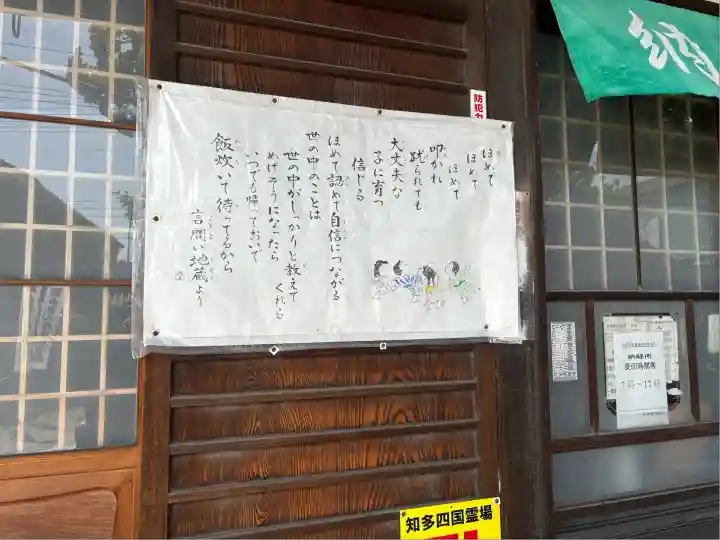 ほめて
ほめて
ほめて
叩かれ
蹴られても
大丈夫な
子に育つ
信じる
ほめて認めて自信につながる
世の中のことは
世の中がしっかりと教えて
くれる
めげそうになったら
いつでも帰っておいで
飯炊いて待ってるから
言問い地蔵より
防犯カ
納経所
受付時間
7時〜17時
知多四国霊場